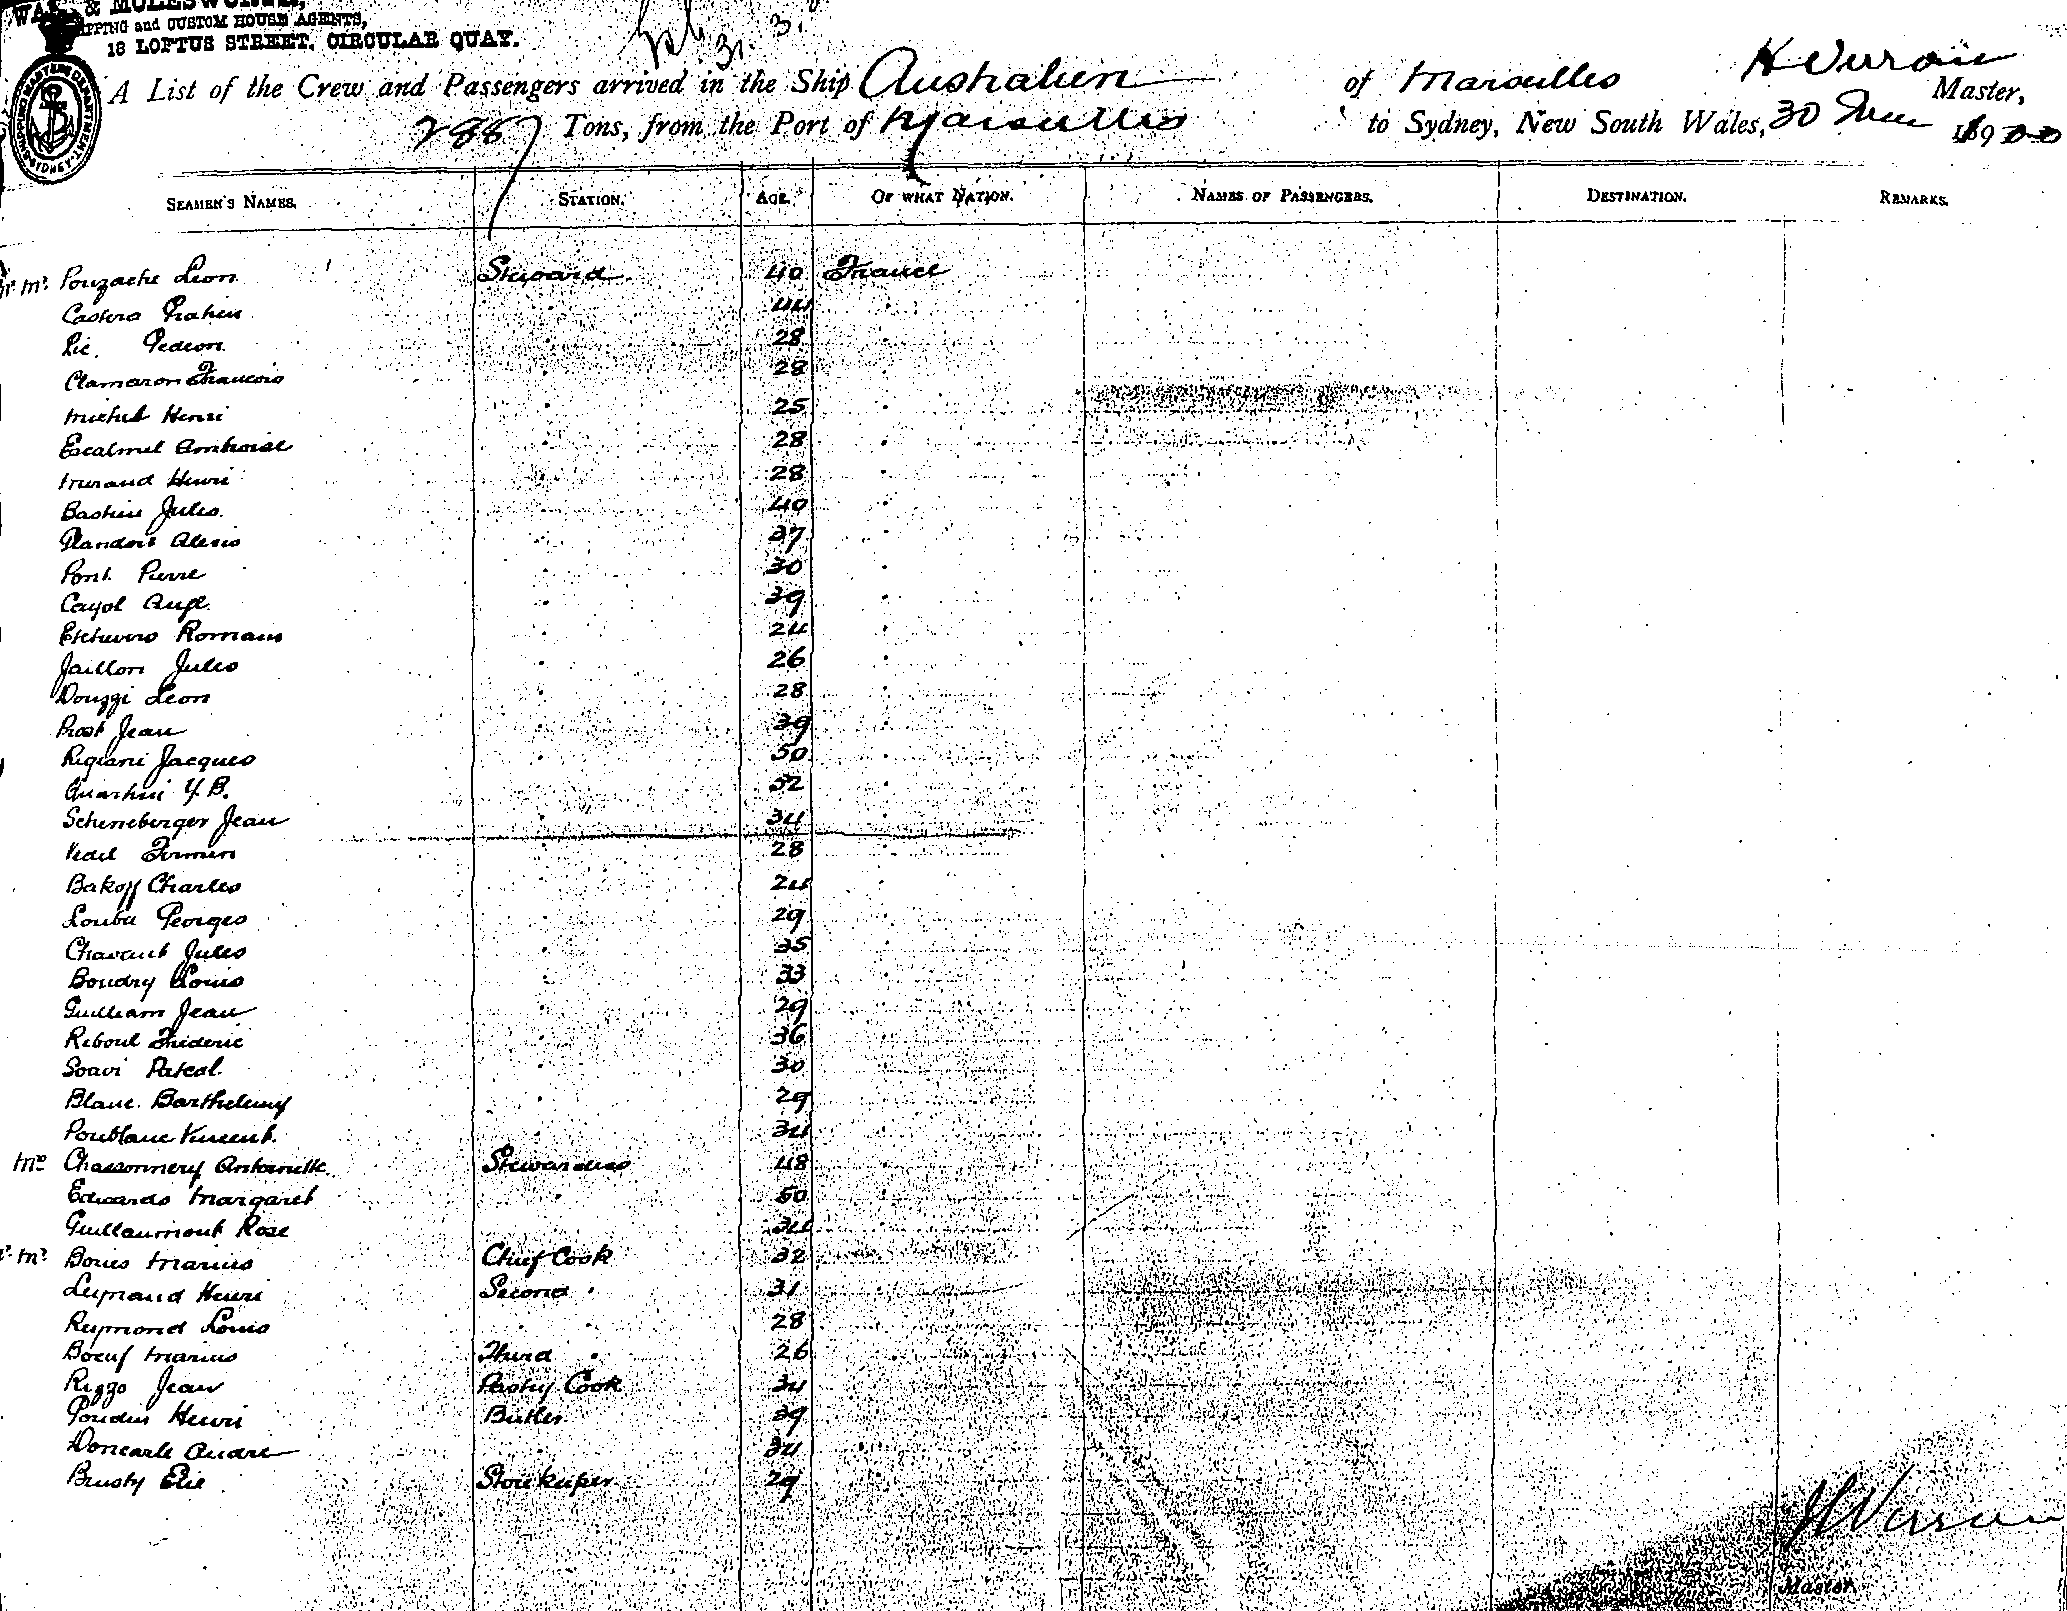 & MOLESWORTH,
SHIPPING and CUSTOM HOUSE AGENTS,
18 LOFTUS STREET, CIRCULAR QUAY.
A List of the Crew and Passengers arrived in the Ship Australien of Marseilles Master,
2887 Tons, from the Port of Marseilles to Sydney, New South Wales, 30 1900
SEAMEN'S NAMES. STATION. AGE. OF WHAT NATION. NAMES OF PASSENGERS. DESTINATION. REMARKS.
Mr Pouzache Leon Steward 40 France
Castera 44
Pic Gedeon 28
Clamaron Francois 28
Michel Henri 25
Escalmel Ambroise 28
Henri 28
Bastien Jules 40
Alexis 37
Pont Pierre 30
Cayol Augt. 39
Romain 24
Jaillon Jules 26
Douzgi Leon 28
Prost Jean 39
Rigiani Jacques 50
Y. B. 52
Scheneberger Jean 34
Vedel Firmin 28
Bakoff Charles 24
Georges 29
Jules 35
Boudry Louis 33
Guilliam Jean 29
Reboul Frideric 36
Soavi Pascal 30
Blanc Barthelemy 29
Poublanc Vincent 34
Chassonnery Antoinette Stewardess 48
Edwards Margaret 50
Guillaumont Rose 34
Bories Marius Chief Cook 32
Henri Second 31
Reymond Louis 28
Boeuf Marius Third 26
Rizzo Jean Pastry Cook 34
Henri Butler 39
Doncarle Andre 34
Brusty Elie Storekeeper 29
Master